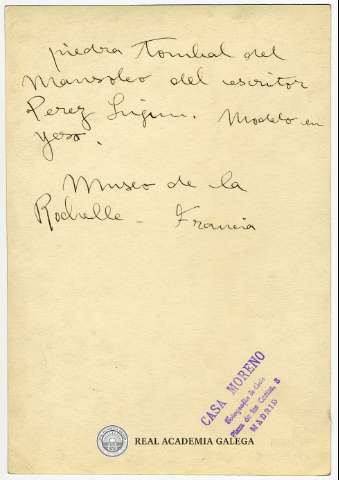 piedra Tombal del
Mausoleo del escritor
Perez Lugin. Modelo en
yeso.
Museo de la
Rochelle - Francia
CASA MORENO
Fotografía de Arte
Plaza de las Cortes, 8
MADRID
REAL ACADEMIA GALEGA